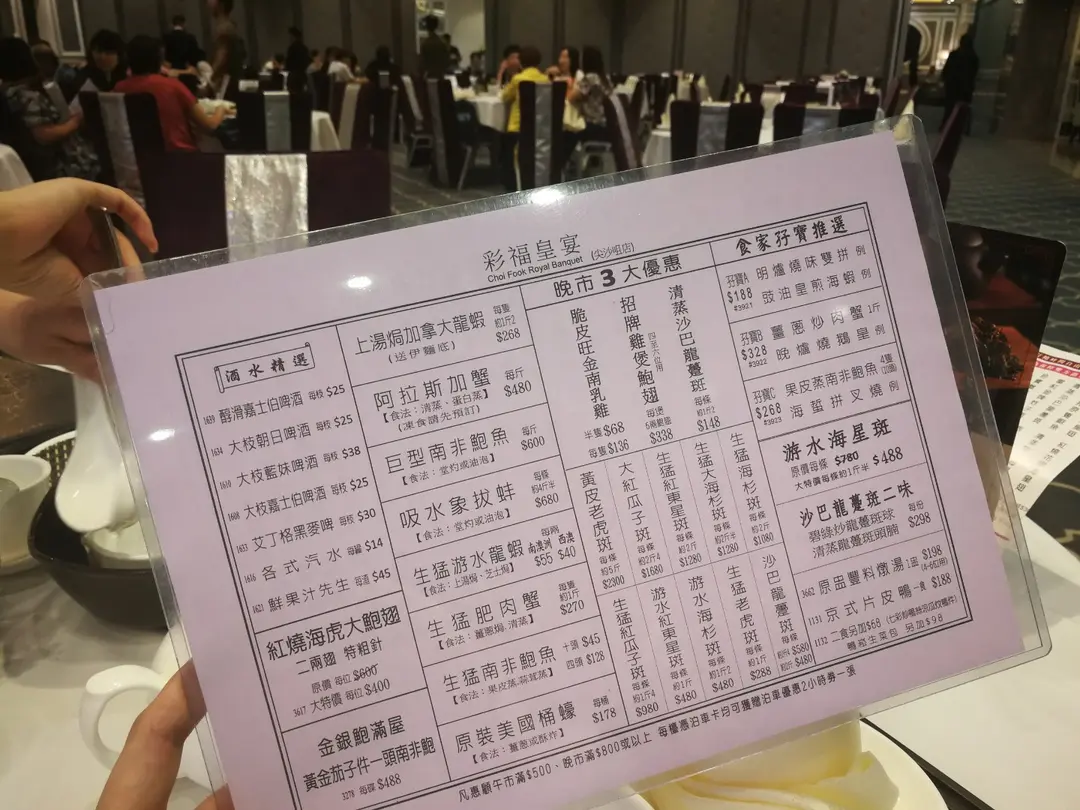 彩福皇宴 (尖沙咀店)
Choi Fook Royal Banquet
酒水精選
1639 醇滑嘉士伯啤酒 每枝 $25
1634 大枝朝日啤酒 每枝 $25
1610 大枝藍妹啤酒 每枝 $38
1608 大枝嘉士伯啤酒 每枝 $25
1633 艾丁格黑麥啤 每枝 $30
1616 各式汽水 每罐 $14
1621 鮮果汁先生 每渣 $45
紅燒海虎大鮑翅
二兩翅 特粗針
原價 每位 $600
3617 大特價 每位 $400
金銀鮑滿屋
黃金茄子件一頭南非鮑
3278 每碟 $488
上湯焗加拿大龍蝦 每隻 約1斤2 $268
(送伊麵底)
阿拉斯加蟹 每斤 $480
【食法：清蒸、蛋白蒸】
(凍食請先預訂)
巨型南非鮑魚 每斤 $600
【食法：堂灼或油泡】
吸水象拔蚌 每條 約4斤半 $680
【食法：堂灼或油泡】
生猛游水龍蝦 每兩 南澳洲 $55 西澳 $40
【食法：上湯焗、芝士焗】
生猛肥肉蟹 每隻 約1斤 $270
【食法：薑蔥焗、清蒸】
生猛南非鮑魚 十頭 $45 四頭 $128
【食法：果皮蒸、蒜茸蒸】
原裝美國桶蠔 每桶 $178
【食法：薑蔥或酥炸】
晚市3大優惠
清蒸沙巴龍躉斑 每條 約1斤2 $148
招牌雞煲鮑翅 四至六位用 每煲 $338
脆皮旺金南乳雞 半隻 $68 每隻 $136
生猛海杉斑 每條 約2斤 $1080
生猛大海杉斑 每條 約2斤半 $1280
生猛紅東星斑 每條 約2斤 $1280
大紅瓜子斑 每條 約2斤4 $1680
黃皮老虎斑 每條 約5斤 $2300
沙巴龍躉斑 每條 約5斤 $580 約3斤 $480
生猛老虎斑 每條 約1斤 $288
游水海杉斑 每條 約1斤2 $480
游水紅東星斑 每條 約1斤 $480
生猛紅瓜子斑 每條 約1斤4 $980
食家孖寶推選
孖寶A $188 #3921
明爐燒味雙拼 例
豉油皇煎海蝦 例
孖寶B $328 #3922
薑蔥炒肉蟹 1斤
晚爐燒鵝皇 例
孖寶C $268 #3923
果皮蒸南非鮑魚 4隻
海蜇拼叉燒 例
游水海星斑
原價每條 $780
大特價每條約1斤半 $488
沙巴龍躉斑二味
碧綠炒龍躉斑球
清蒸龍躉斑頭腩
每份 $298
3662 原盅豐料燉湯 1盅 $198 (4-6位用)
1131 京式片皮鴨 一食 $188
1132 二食另加$68
凡惠顧午市滿$500、晚市滿$800或以上 每檯憑泊車卡均可獲贈泊車優惠2小時券一張